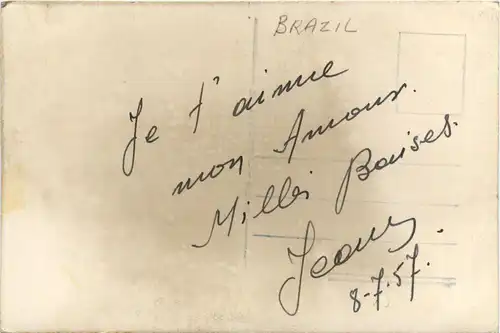 BRAZIL
Je t'aime
mon Amour.
Milles Baises.
Jeany
8-7.57.